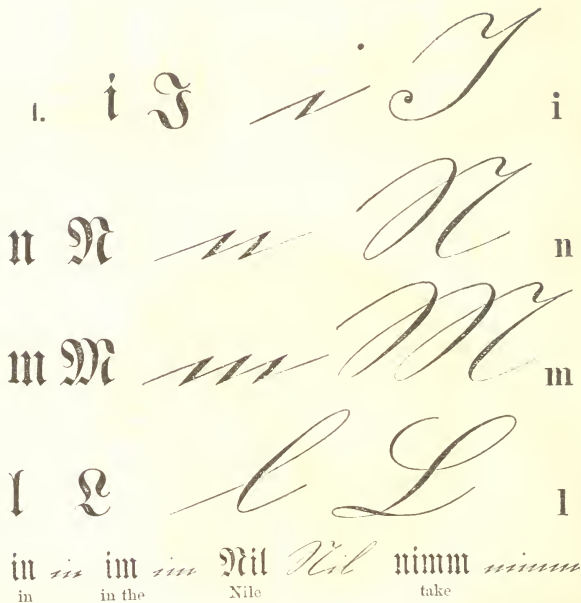 1. i I i I i
n N n N n
m M m M m
l L l L l
in in im im Nil Nil nimm nimm
in in the Nile take